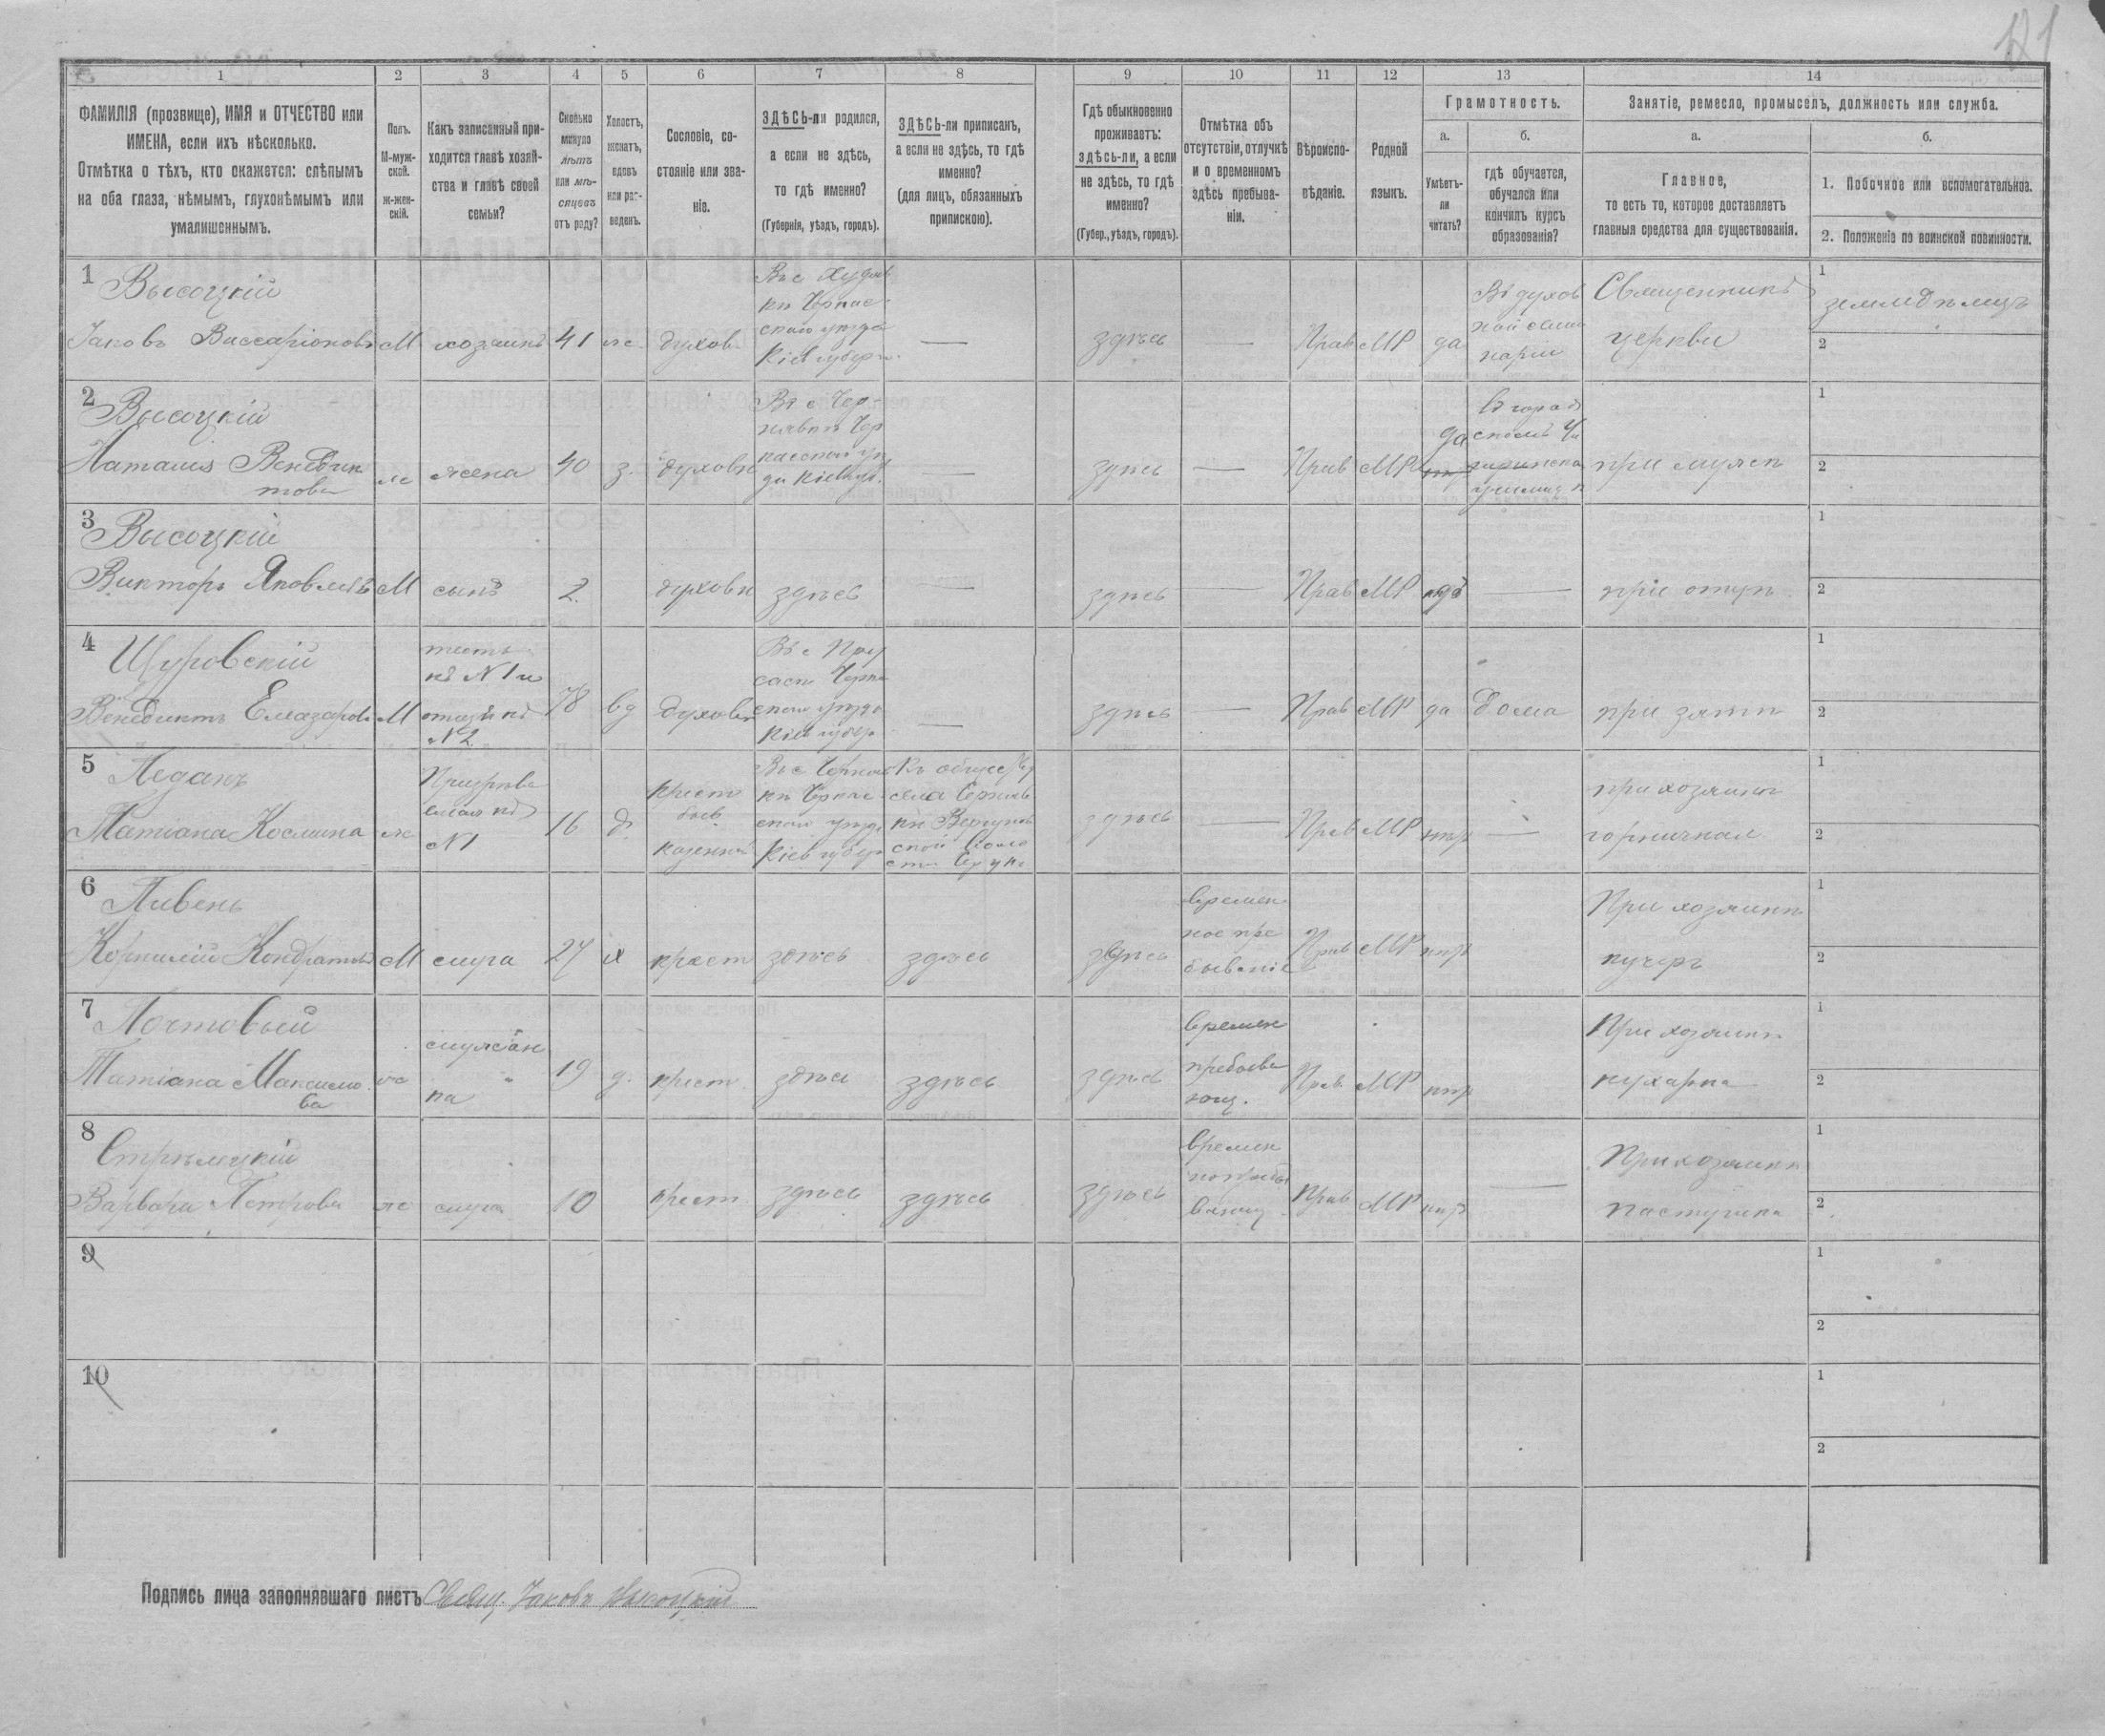 121
1 2 3 4 5 6 7 8 9 10 11 12 13 14
ФАМИЛІЯ (прозвище), ИМЯ и ОТЧЕСТВО или
ИМЕНА, если ихъ нѣсколько.
Отмѣтка о тѣхъ, кто окажется: слѣпымъ
на оба глаза, нѣмымъ, глухонѣмымъ или
умалишеннымъ.
Полъ.
М-муж-
ской.
ж-жен-
скій.
Какъ записанный при-
ходится главѣ хозяй-
ства и главѣ своей
семьи?
Сколько
минуло
лѣтъ
или мѣ-
сяцевъ
отъ роду?
Холостъ,
женатъ,
вдовъ
или раз-
веденъ.
Сословіе, со-
стояніе или зва-
ніе.
ЗДѢСЬ-ли родился,
а если не здѣсь,
то гдѣ именно?
(Губернія, уѣздъ, городъ).
ЗДѢСЬ-ли приписанъ,
а если не здѣсь, то гдѣ
именно?
(для лицъ, обязанныхъ
припискою).
Гдѣ обыкновенно
проживаетъ:
здѣсь-ли, а если
не здѣсь, то гдѣ
именно?
(Губер., уѣздъ, городъ).
Отмѣтка объ
отсутствіи, отлучкѣ
и о временномъ
здѣсь пребыва-
ніи.
Вѣроиспо-
вѣданіе.
Родной
языкъ.
Грамотность.
а.
Умѣетъ-
ли
читать?
б.
гдѣ обучается,
обучался или
кончилъ курсъ
образованія?
Занятіе, ремесло, промыселъ, должность или служба.
а.
Главное,
то есть то, которое доставляетъ
главныя средства для существованія.
б.
1. Побочное или вспомогательное.
2. Положеніе по воинской повинности.
1
Высоцкій
Іаковъ Виссаріоновъ
М
хозяинъ
41
ж.
духов.
Въ с. Худяк
кѣ Черкас-
скаго уѣзда
Кіев губерн.
—
здѣсь
—
Прав
МР
да
Въ духов
ной семи
наріи
Священникъ
церкви
1
земледѣлецъ
2
2
Высоцкій
Наталія Венедик
това
ж
жена
40
з.
духовн
Въ с Чер-
нявкѣ Чер
касскаго уѣз
да Кіев губ.
—
здѣсь
—
Прав
МР
да
училищѣ
при мужѣ
1
2
3
Высоцкій
Викторъ Яковлевъ
М
сынъ
2
духовн
здѣсь
—
здѣсь
—
Прав
МР
—
при отцѣ
1
2
4
Щуровскій
Венедиктъ Елеазаровъ
М
тесть
къ N 1 и
отецъ къ
N 2
78
вд
духовн
Въ с Пру
сахъ Черка
скаго уѣзда
Кіев губер
—
здѣсь
—
Прав
МР
да
дома
при зятѣ
1
2
5
Педанъ
Татіана Космина
ж
Призрѣва
емая къ
N 1
16
д.
крест
быв
казенный
Въ с Черняв
кѣ Черкас-
скаго уѣзда
Кіев губер
Къ обществу
села Черняв
ки
здѣсь
—
Прав
МР
нтъ
—
при хозяинѣ
горничная
1
2
6
Пивень
Корнилій Кондратовъ
М
слуга
27
х
крест
здѣсь
здѣсь
здѣсь
времен
ное пре
бываніе
Прав
МР
нтъ
При хозяинѣ
кучеръ
1
2
7
Почтовый
Татіана Максимо
ва
ж
служан
ка
19
д.
крест.
здѣсь
здѣсь
здѣсь
времен
пребыва
ющ.
Прав
МР
нтъ
При хозяинѣ
кухарка
1
2
8
Стрѣлецкій
Варвара Петрова
ж
слуга
10
крест
здѣсь
здѣсь
здѣсь
времен
но пребы
вающ
Прав
МР
нтъ
—
При хозяинѣ
пастушка
1
2
9
1
2
10
1
2
Подпись лица заполнявшаго листъ Свящ. Іаковъ Высоцкій